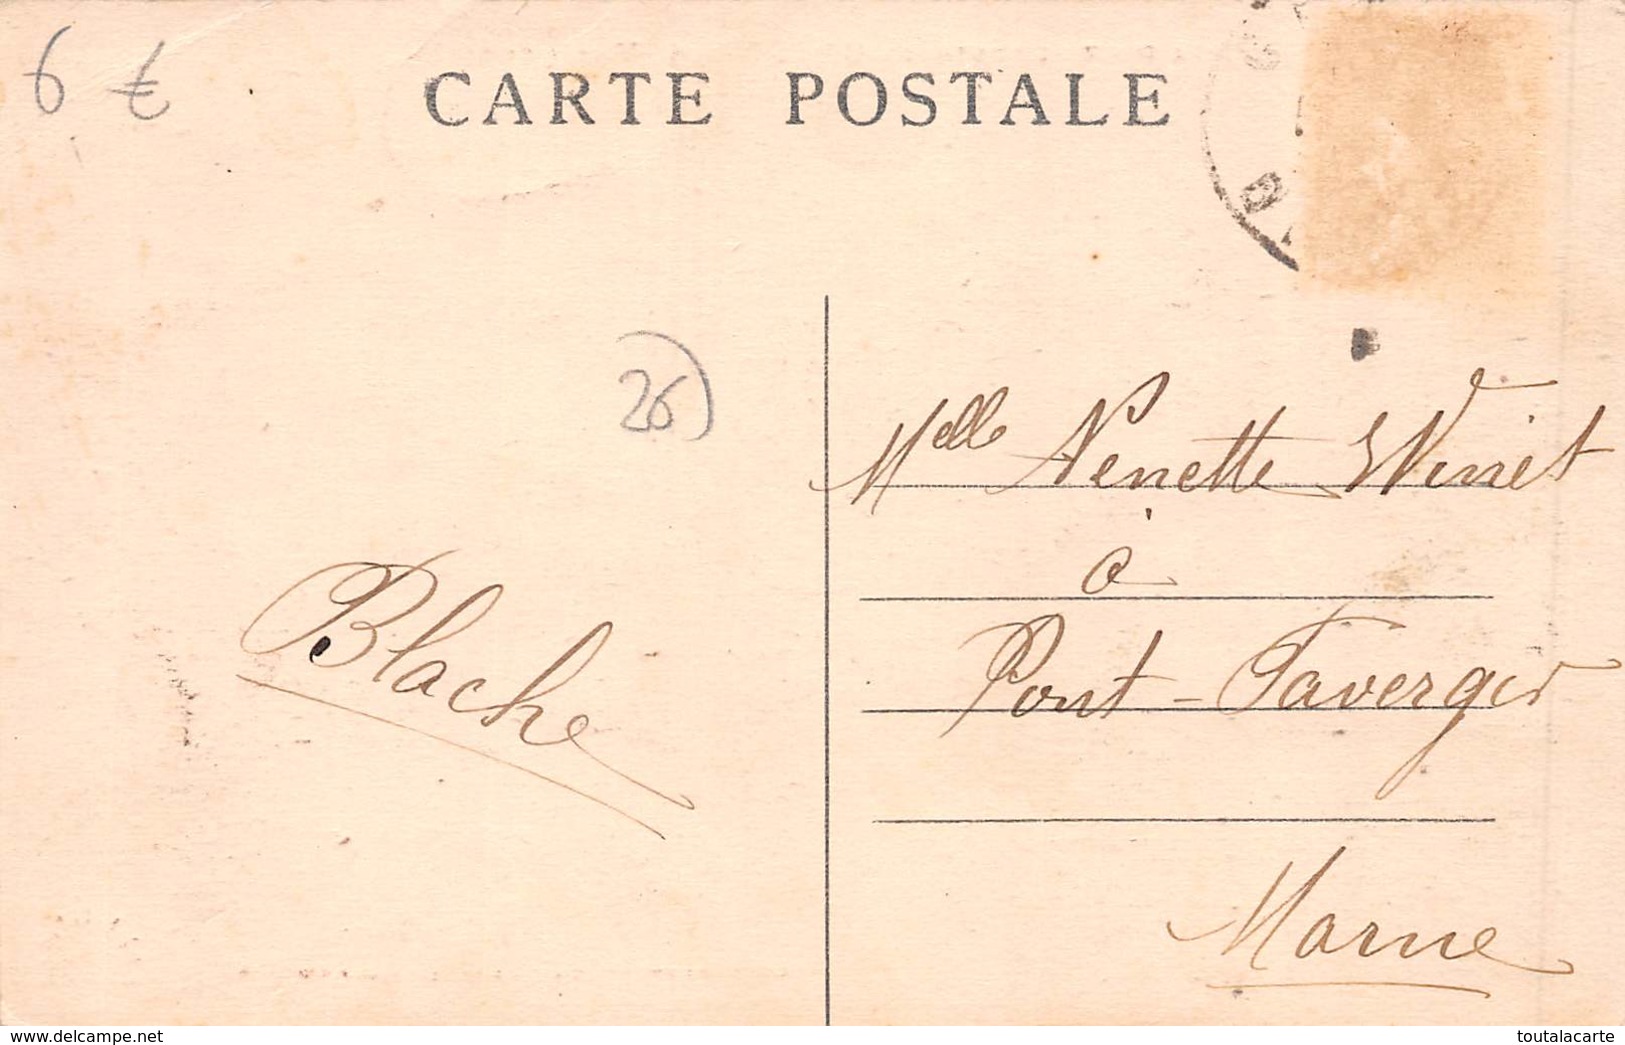 6 €
CARTE POSTALE
26
Melle Nenette Winet
à
Pont-Faverger
Marne
Blache
delcampe.net
toutalacarte